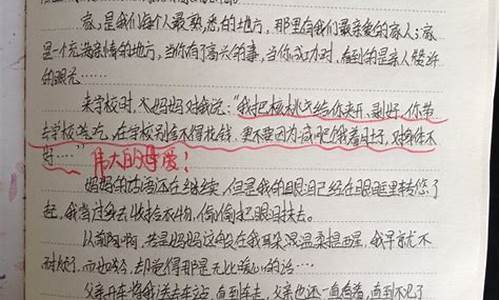 家,是我们每个人最熟悉的地方,那里有我们最亲爱的家人;家
是一个充满亲情的地方,当你有了高兴的事,当你成功时,看到的是亲人赞许
的眼光……
来学校时,妈妈对我说:“我把核桃给你夹开、剥好,你带
去学校吃,在学校别舍不得花钱,更不要因为减肥饿着肚子,对身体不
好……”伟大的母爱!
妈妈的话还在继续,但是我的眼泪已经在眼眶里转悠了
起,我背过身去收拾衣物,偷偷把眼泪抹去。
以前啊,若是妈妈这般在我耳朵旁温柔提醒,我早就不
耐烦了,而如今,却觉得那是无比暖心的话……
父亲开车将我送去车站,直到车走,父亲也还一直看着,直到不见了